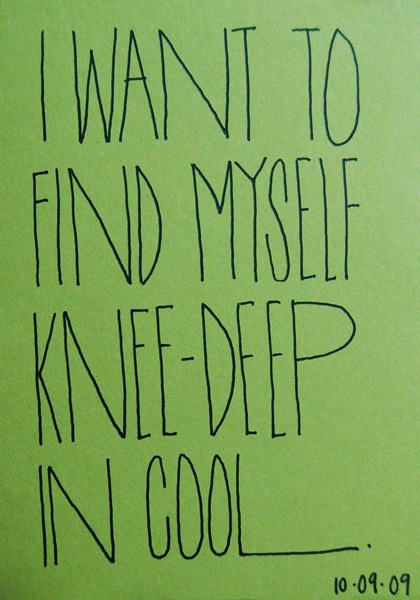 I WANT TO
FIND MYSELF
KNEE-DEEP
IN COOL.
10·09·09